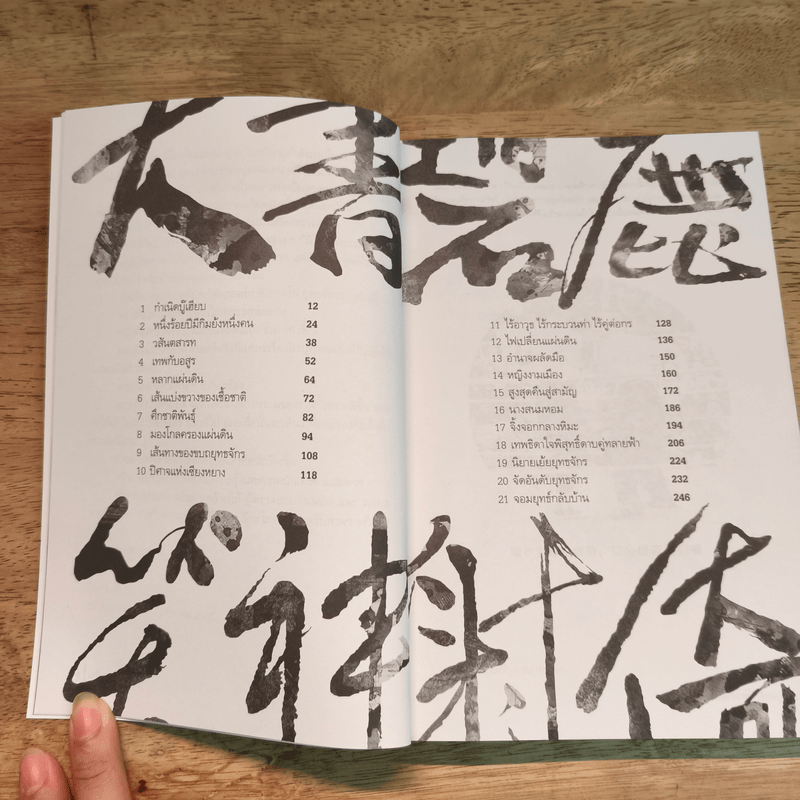 書碧鹿
1 กำเนิดบู๊เฮียบ 12
2 หนึ่งร้อยปีมีกิมย้งหนึ่งคน 24
3 วสันตสารท 38
4 เทพกับอสูร 52
5 หลากแผ่นดิน 64
6 เส้นแบ่งขวางของเชื้อชาติ 72
7 ศึกชาติพันธุ์ 82
8 มองโกลครองแผ่นดิน 94
9 เส้นทางของขบถยุทธจักร 108
10 ปีศาจแห่งเซียงหยาง 118
11 ไร้อาวุธ ไร้กระบวนท่า ไร้คู่ต่อกร 128
12 ไฟเปลี่ยนแผ่นดิน 136
13 อำนาจผลัดมือ 150
14 หญิงงามเมือง 160
15 สูงสุดคืนสู่สามัญ 172
16 นางสนมหอม 186
17 จิ้งจอกกลางหิมะ 194
18 เทพธิดาใจพิสุทธิ์ดาบคู่ทลายฟ้า 206
19 นิยายเย้ยยุทธจักร 224
20 จัดอันดับยุทธจักร 232
21 จอมยุทธ์กลับบ้าน 246
笑神俠